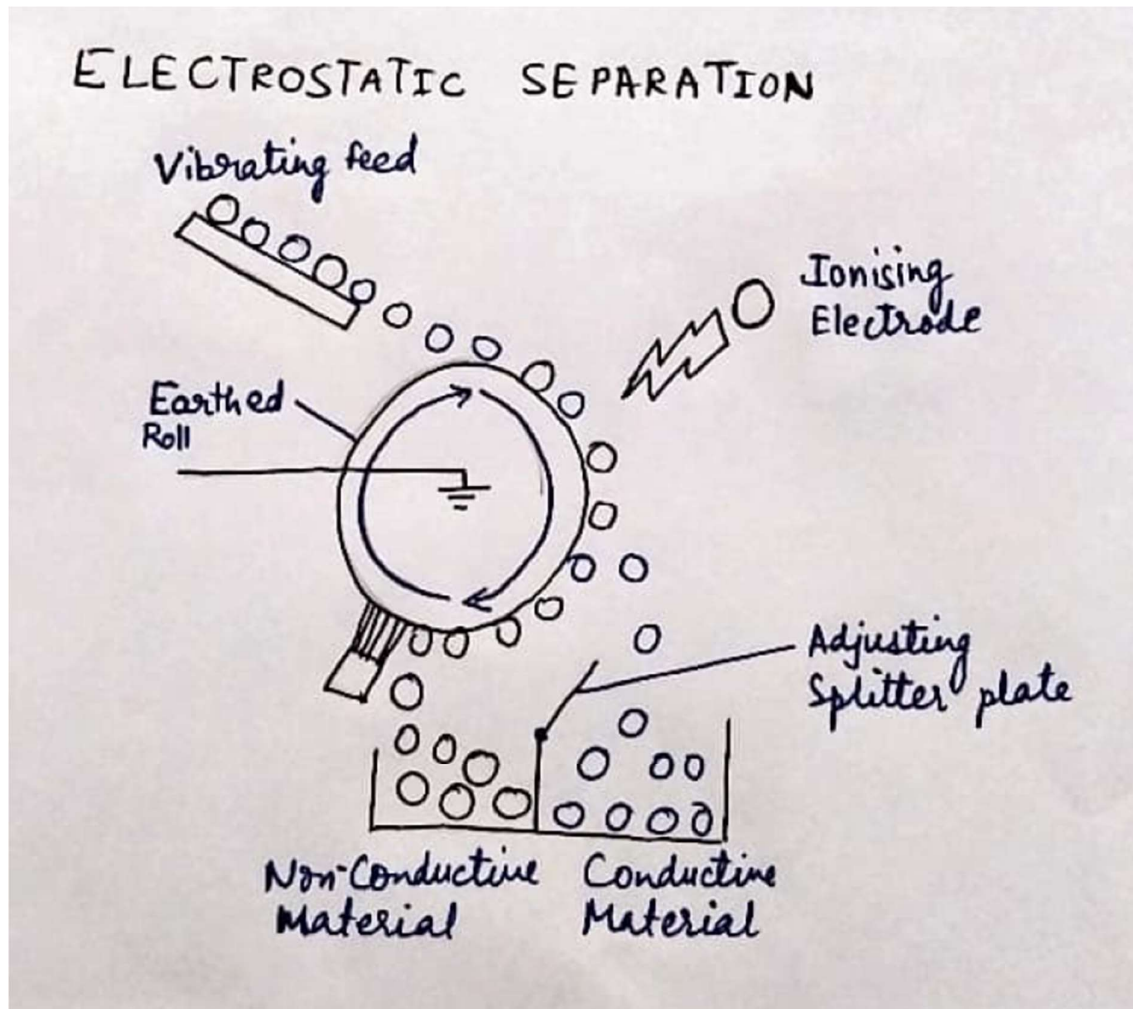 ELECTROSTATIC SEPARATION
Vibrating feed
Ionising
Electrode
Earthed
Roll
Adjusting
Splitter plate
Non-Conductive
Material
Conductive
Material